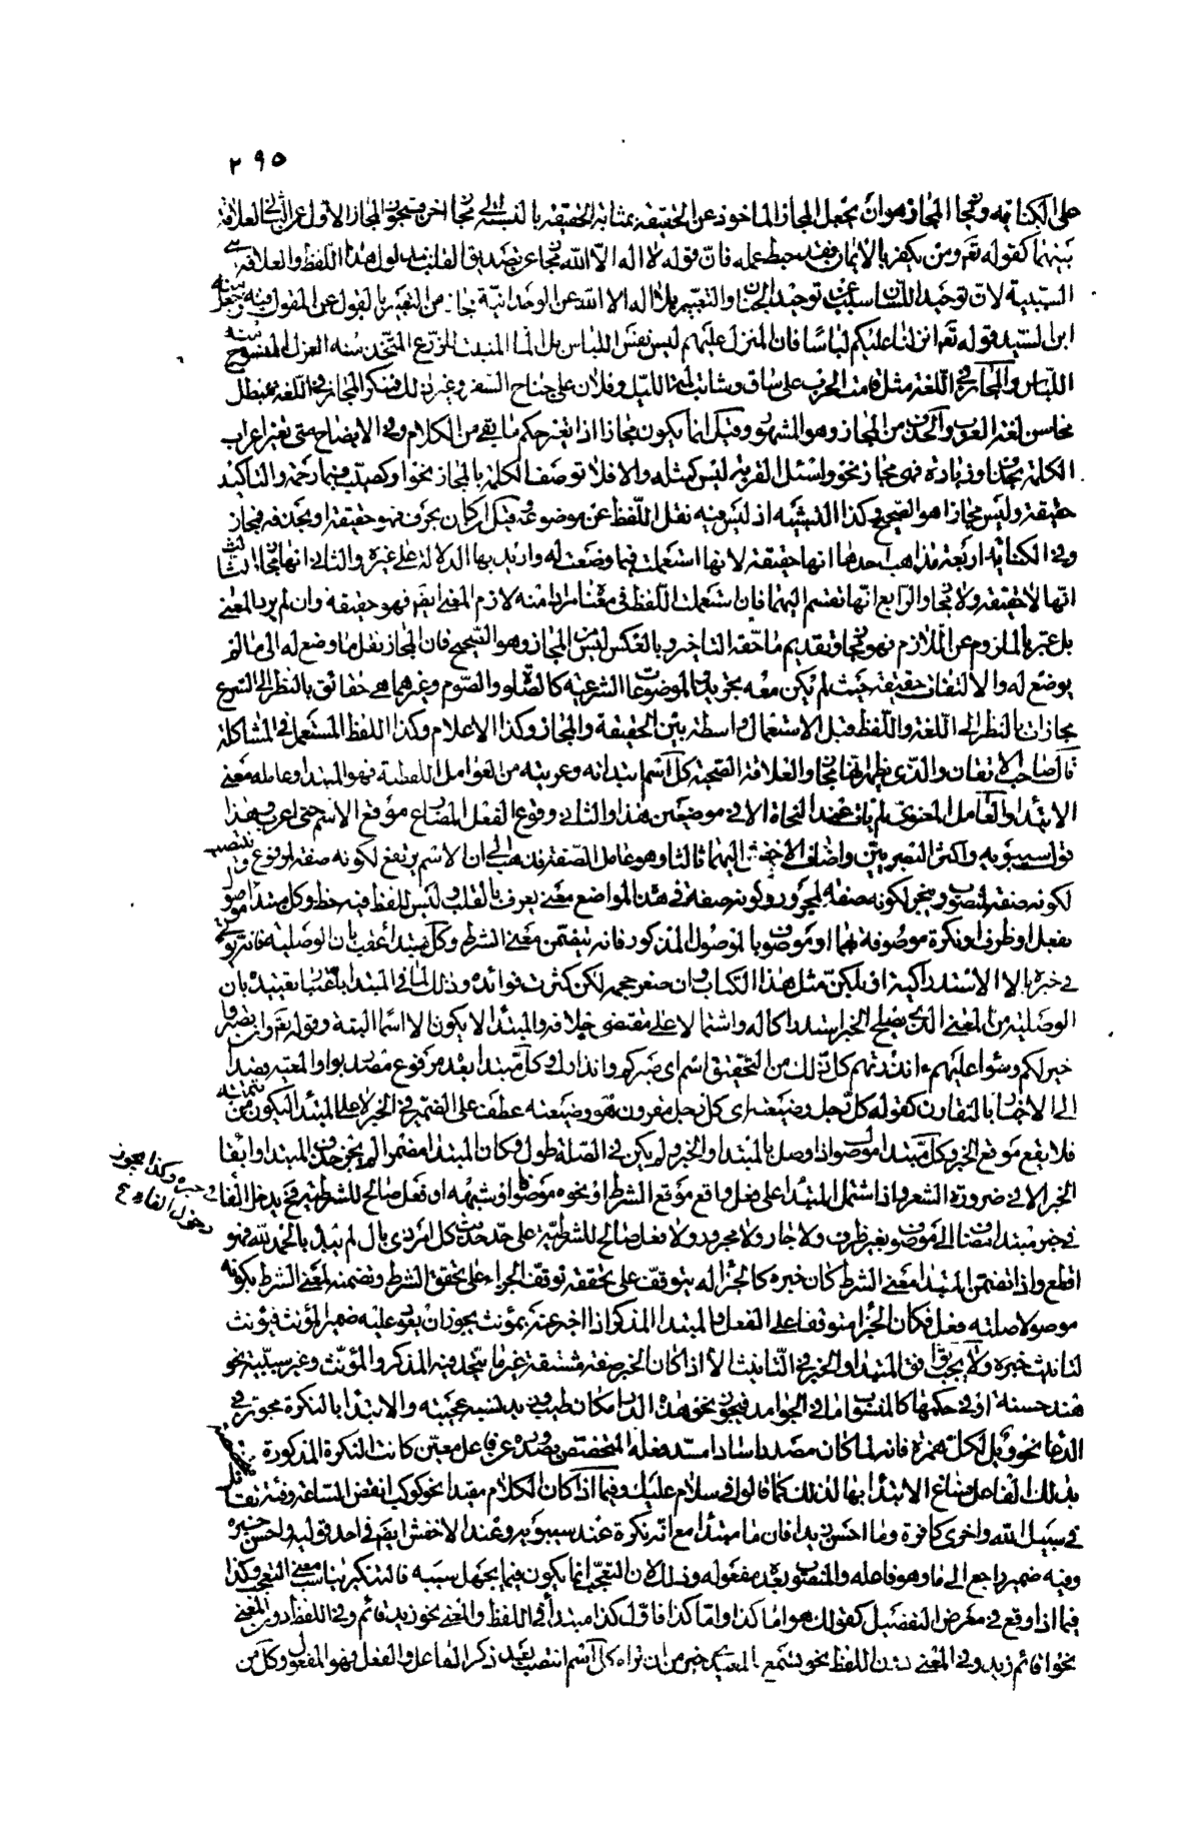 ٢٩٥
على الكناية ومجاز المجاز هو ان يجعل المجاز الماخوذ عن الحقيقة بمثابة الحقيقة بالنسبة الى مجاز اخر فيتجوز بالمجاز الاول عن الثاني لعلاقة
بينهما كقوله تعم ومن يكفر بالايمان فقد حبط عمله فان قوله لا اله الا الله مجاز عن تصديق القلب بمدلول هذا اللفظ والعلاقة هي
السببية لان توحيد اللسان مسبب عن توحيد الجنان والتعبير بلا اله الا الله عن الوحدانية مجاز من التعبير بالقول عن المقول فيه وجعل منه
ابن السيد قوله تعم انزلنا عليكم لباسا فان المنزل عليهم ليس نفس اللباس بل الماء المنبت للزرع المتخذ منه الغزل المنسوج منه
اللباس والمجاز في اللغة مثل قامت الحرب على ساق وشابت لمة الليل وفلان على جناح السفر وغير ذلك فمنكر المجاز في اللغة مبطل
محاسن لغة العرب والحذف من المجاز وهو المشهور وقيل انما يكون مجازا اذا تغير حكم ما بقي من الكلام وفي الايضاح متى تغير اعراب
الكلمة بحذف او زيادة فهي مجاز نحو واسئل القرية ليس كمثله والا فلا توصف الكلمة بالمجاز نحو او كصيب فبما رحمة والتاكيد
حقيقة وليس مجازا هو الصحيح وكذا التشبيه اذ ليس فيه نقل اللفظ عن موضوعه قيل ان كان بحرف فهو حقيقة او بحذفه فمجاز
وفي الكناية اربعة مذاهب احدها انها حقيقة لانها استعملت فيما وضعت له واريد بها الدلالة على غيره والثاني انها مجاز الثالث
انها لا حقيقة ولا مجاز والرابع انها تقسم اليهما فان استعملت اللفظ في معناه مرادا منه لازم المعنى ايضا فهو حقيقة وان لم يرد المعنى
بل عبر بالملزوم عن اللازم فهو مجاز وتقديم ما حقه التاخير وبالعكس ليس من المجاز وهو الصحيح فان المجاز نقل ما وضع له الى ما لم
يوضع له والالتفات حقيقة حيث لم يكن معه تجريد والموضوعات الشرعية كالصلوة والصوم وغيرهما هي حقائق بالنظر الى الشرع
مجازات بالنظر الى اللغة واللفظ قبل الاستعمال واسطة بين الحقيقة والمجاز وكذا الاعلام وكذا اللفظ المستعمل في المشاكلة
قال صاحب الاتقان والذي يظهر انها مجاز والعلاقة الصحبة كل اسم ابتدأته وعريته من العوامل اللفظية فهو المبتدا وعامله معنى
الابتداء والعامل المعنوي لم يات عند النحاة الا في موضعين هذا والثاني وقوع الفعل المضارع موقع الاسم حتى اعرب هذا
قول سيبويه واكثر البصريين واضاف الاخفش اليهما ثالثا وهو عامل الصفة فذهب الى ان الاسم يرتفع لكونه صفة لمرفوع وينتصب
لكونه صفة لمنصوب وينجر لكونه صفة لمجرور وكونه صفة في هذه المواضع معنى يعرف بالقلب وليس للفظ فيه حظ وكل مبتدا موصول
بفعل او ظرف او نكرة موصوفة بهما او موصوف بالموصول المذكور فانه يتضمن معنى الشرط وكل مبتدا عقب بان الوصلية فانه يؤتى
في خبره بالا الاستدراكية او بلكن مثل هذا الكتاب وان صغر حجمه لكن كثرت فوائده وذلك لما في المبتدا باعتبار تقييده بان
الوصلية من المعنى الذي يصلح الخبر استدراكا له واشتمالا على مقتضى خلافه والمبتدا لا يكون الا اسما البتة وقوله تعم وان تصبروا
خير لكم وسواء عليهم ءانذرتهم كل ذلك من التحقيق اسم اي صبركم وانذارك وكل مبتدا بعده مرفوع مصدر بواو المعية قصدا
الى الاخبار بالتقارن كقوله كل رجل وضيعته اي كل رجل مقرون هو وضيعته عطف على الضمير في الخبر لا على المبتدا ليكون من تتمته
فلا يقع موقع الخبر وكل مبتدا موصول اذا وصل بالمبتدا والخبر ولم يكن في الصلة طول وكان المبتدا مضمرا لم يجز حذف المبتدا وابقاء
الخبر الا في ضرورة الشعر واذا اشتمل المبتدا على فعل واقع موقع الشرط او نحوه موصول او شبهه او فعل صالح للشرطية فحينئذ يدخل الفاء في خبره وكذا يجوز
دخول الفاء صح
في خبر مبتدا مضاف الى موصوف بغير ظرف ولا جار ولا مجرور ولا فعل صالح للشرطية على حد حديث كل امر ذي بال لم يبدأ بالحمد لله فهو
اقطع واذا تضمن المبتدا معنى الشرط كان خبره كالجزاء له يتوقف على تحققه توقف الجزاء على تحقق الشرط وتضمنه لمعنى الشرط بكونه
موصولا صلته فعل فكان الجزاء متوقفا على الفعل والمبتدا المذكر اذا اخبر عنه بمؤنث يجوز ان يعود عليه ضمير المؤنث فيؤنث
لتانيث خبره ولا يجب توافق المبتدا والخبر في التانيث الا اذا كان الخبر صفة مشتقة غير ما يتحد فيه المذكر والمؤنث وغير سببية نحو
هند حسنة او في حكمها كالمنسوب اما في الجوامد فيجوز نحو هذه الدار مكان طيب وزيد نسمة عجيبة والابتداء بالنكرة مجوز في
الدعاء نحو ويل لكل همزة فانه لما كان مصدرا سادا مسد فعله المختص بصدوره عن فاعل معين كانت النكرة المذكورة متخصصة
بذلك الفاعل فساغ الابتداء بها لذلك كما قالوا في سلام عليك وفيما اذا كان الكلام مفيدا نحو كوكب انقض الساعة وفئة تقاتل
في سبيل الله واخرى كافرة وما احسن زيدا فان ما مبتدا مع انه نكرة عند سيبويه وعند الاخفش ايضا في احد قوليه واحسن خبره
وفيه ضمير راجع الى ما وهو فاعله والمنصوب بعده مفعوله وذلك لان التعجب انما يكون فيما يجهل سببه فالتنكير يناسب معنى التعجب وكذا
فيما اذا وقع في معرض التفصيل كقولك هو اما كذا واما كذا فاقول كذا مبتدأ في اللفظ والمعنى نحو زيد قائم وفي اللفظ دون المعنى
نحو اقائم زيد وفي المعنى دون اللفظ نحو تسمع بالمعيدي خير من ان تراه كل اسم انتصب بعد ذكر الفاعل والفعل فهو المفعول وكل من